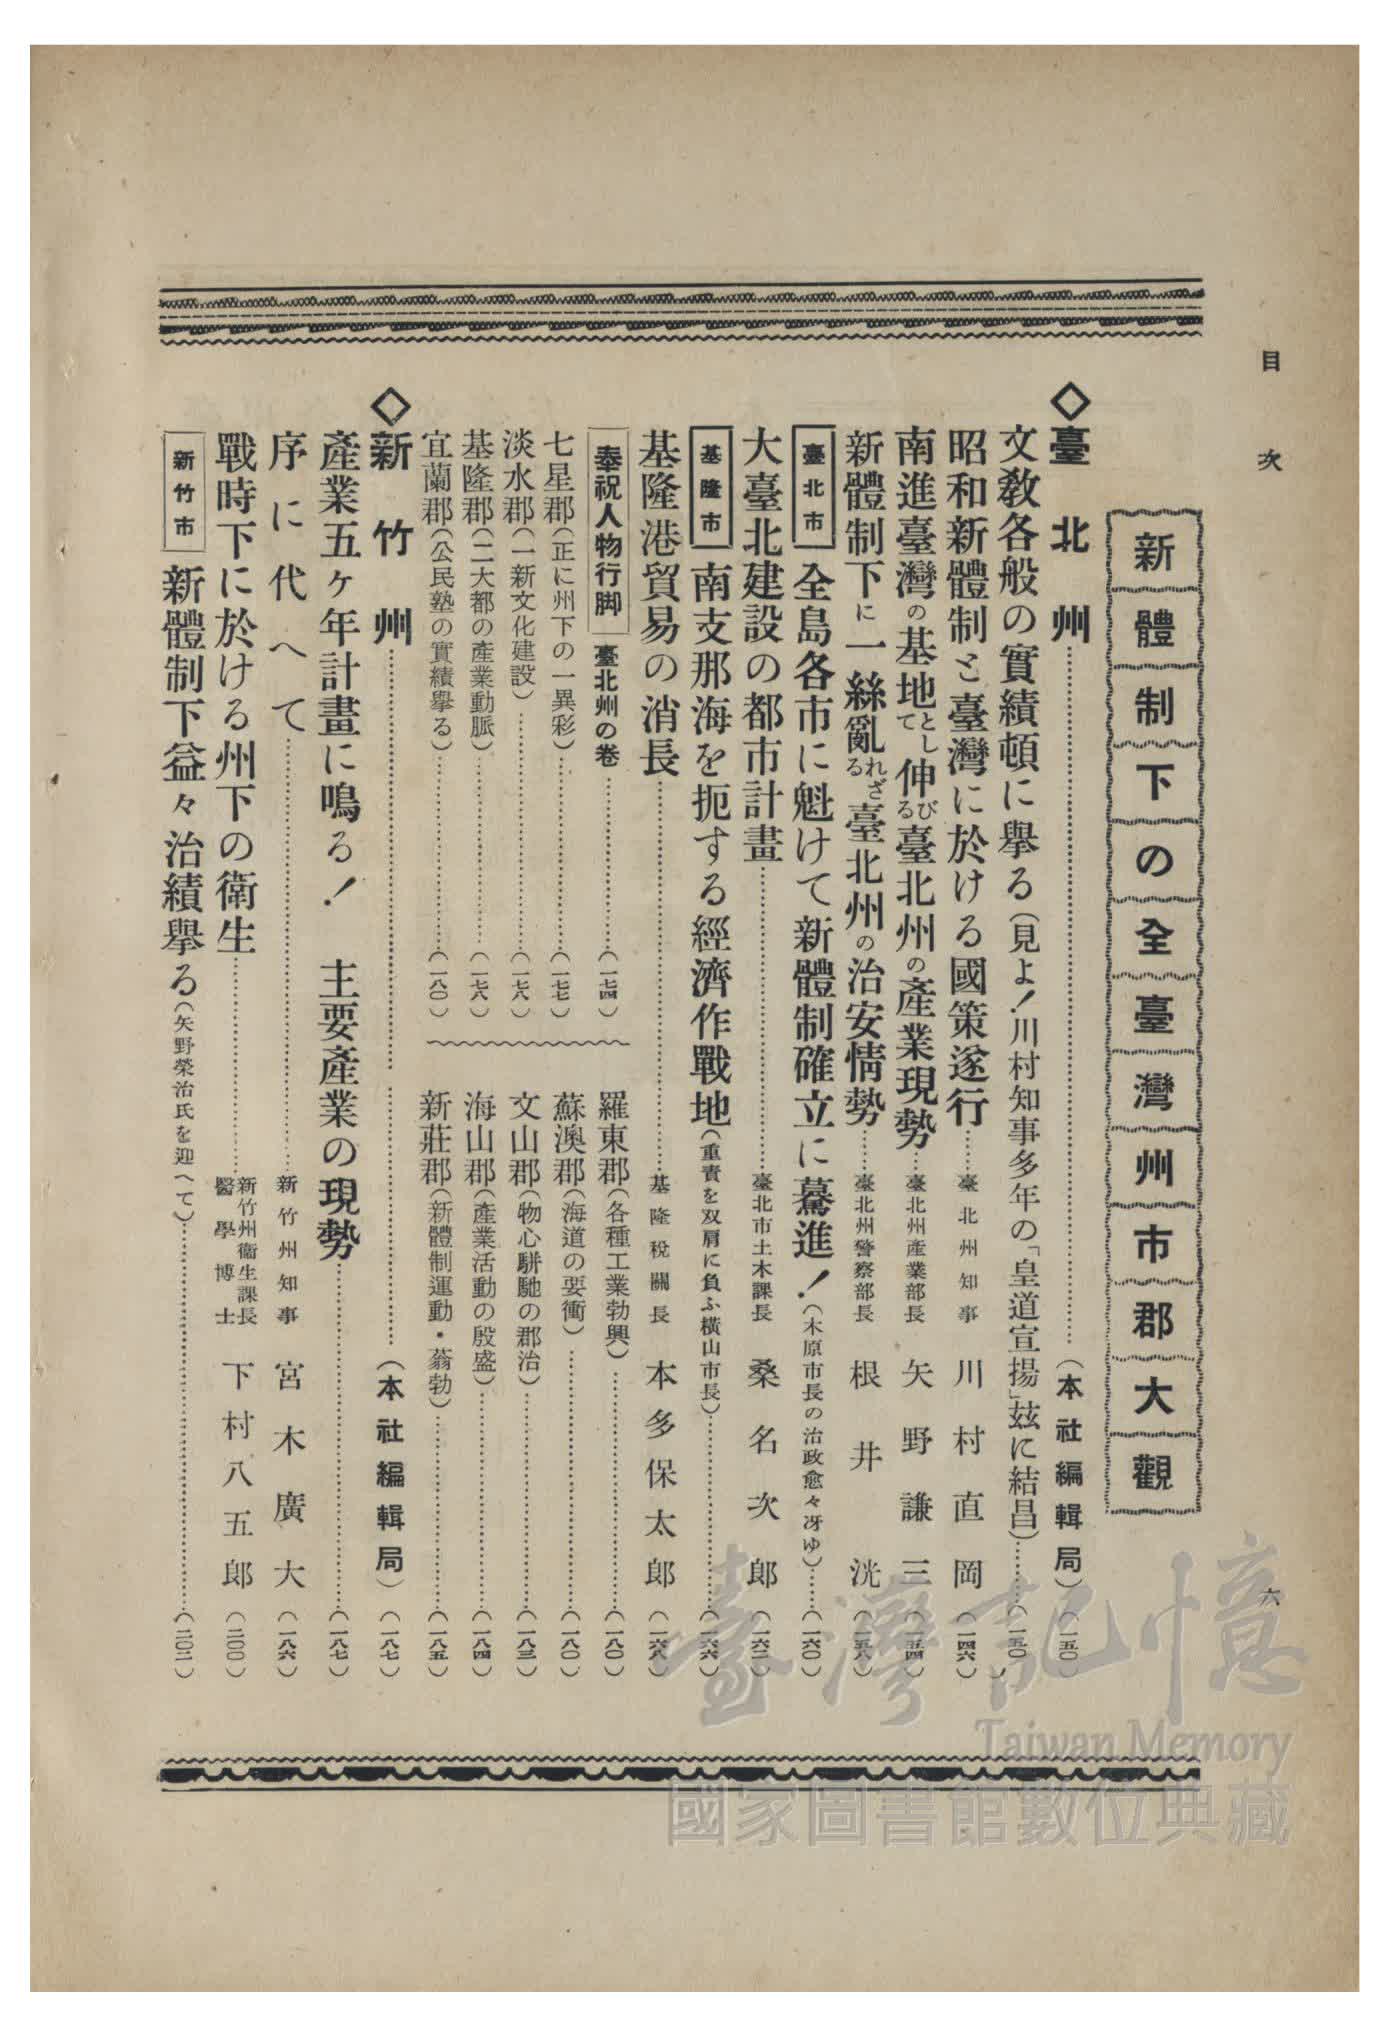 目次
六
新體制下の全臺灣州市郡大觀
◇臺北州……(本社編輯局)(一五〇)
文敎各般の實績頓に擧る(見よ!川村知事多年の「皇道宣揚」玆に結昌)……(一五〇)
昭和新體制と臺灣に於ける國策遂行……臺北州知事 川村直岡(一四六)
南進臺灣の基地として伸びる臺北州の產業現勢……臺北州產業部長 矢野謙三(一五四)
新體制下に一絲亂れざる臺北州の治安情勢……臺北州警察部長 根井洸(一五八)
臺北市 全島各市に魁けて新體制確立に驀進!(木原市長の治政愈々冴ゆ)……(一六〇)
大臺北建設の都市計畫……臺北市土木課長 桑名次郎(一六二)
基隆市 南支那海を扼する經濟作戰地(重責を双肩に負ふ橫山市長)……(一六六)
基隆港貿易の消長……基隆稅關長 本多保太郎(一六八)
奉祝人物行脚 臺北州の卷……(一七四)
七星郡(正に州下の一異彩)……(一七七)
淡水郡(一新文化建設)……(一七八)
基隆郡(二大都の產業動脈)……(一七八)
宜蘭郡(公民塾の實績擧る)……(一八〇)
羅東郡(各種工業勃興)……(一八〇)
蘇澳郡(海道の要衝)……(一八〇)
文山郡(物心駢馳の郡治)……(一八三)
海山郡(產業活動の殷盛)……(一八四)
新莊郡(新體制運動・蓊勃)……(一八五)
◇新竹州……(本社編輯局)(一八七)
產業五ヶ年計畫に鳴る! 主要產業の現勢……(一八七)
序に代へて……新竹州知事 宮木廣大(一八六)
戰時下に於ける州下の衞生……新竹州衞生課長 醫學博士 下村八五郎(二〇〇)
新竹市 新體制下益々治績擧る(矢野榮治氏を迎へて)……(二〇二)
臺灣記憶
Taiwan Memory
國家圖書館數位典藏